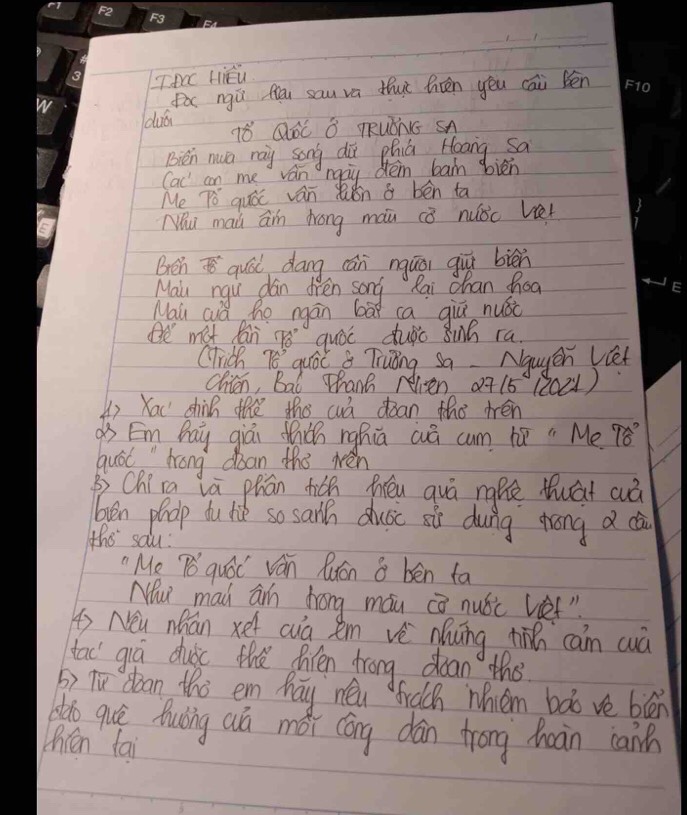 F1
F2
F3
F4
3
W
E
F10
E
I. ĐỌC HIỂU
Đọc ngữ liệu sau và thực hiện yêu cầu bên
dưới
TỔ QUỐC Ở TRƯỜNG SA
Biển mùa này sóng dữ phía Hoàng Sa
Các con mẹ vẫn ngày đêm bám biển
Mẹ Tổ quốc vẫn luôn ở bên ta
Như máu ấm trong màu cờ nước Việt
Biển Tổ quốc đang cần người giữ biển
Máu ngư dân trên sóng lại chan hòa
Máu của họ ngân bài ca giữ nước
Để một lần Tổ quốc được sinh ra.
(Trích Tổ quốc ở Trường Sa - Nguyễn Việt
Chiến, Báo Thanh Niên 27/5/2021)
1) Xác định thể thơ của đoạn thơ trên
2) Em hãy giải thích nghĩa của cụm từ "Mẹ Tổ
quốc" trong đoạn thơ trên
3) Chỉ ra và phân tích hiệu quả nghệ thuật của
biện pháp tu từ so sánh được sử dụng trong 2 câu
thơ sau:
"Mẹ Tổ quốc vẫn luôn ở bên ta
Như máu ấm trong màu cờ nước Việt".
4) Nêu nhận xét của em về những tình cảm của
tác giả được thể hiện trong đoạn thơ.
5) Từ đoạn thơ em hãy nêu trách nhiệm bảo vệ biển
đảo quê hương của mỗi công dân trong hoàn cảnh
hiện tại